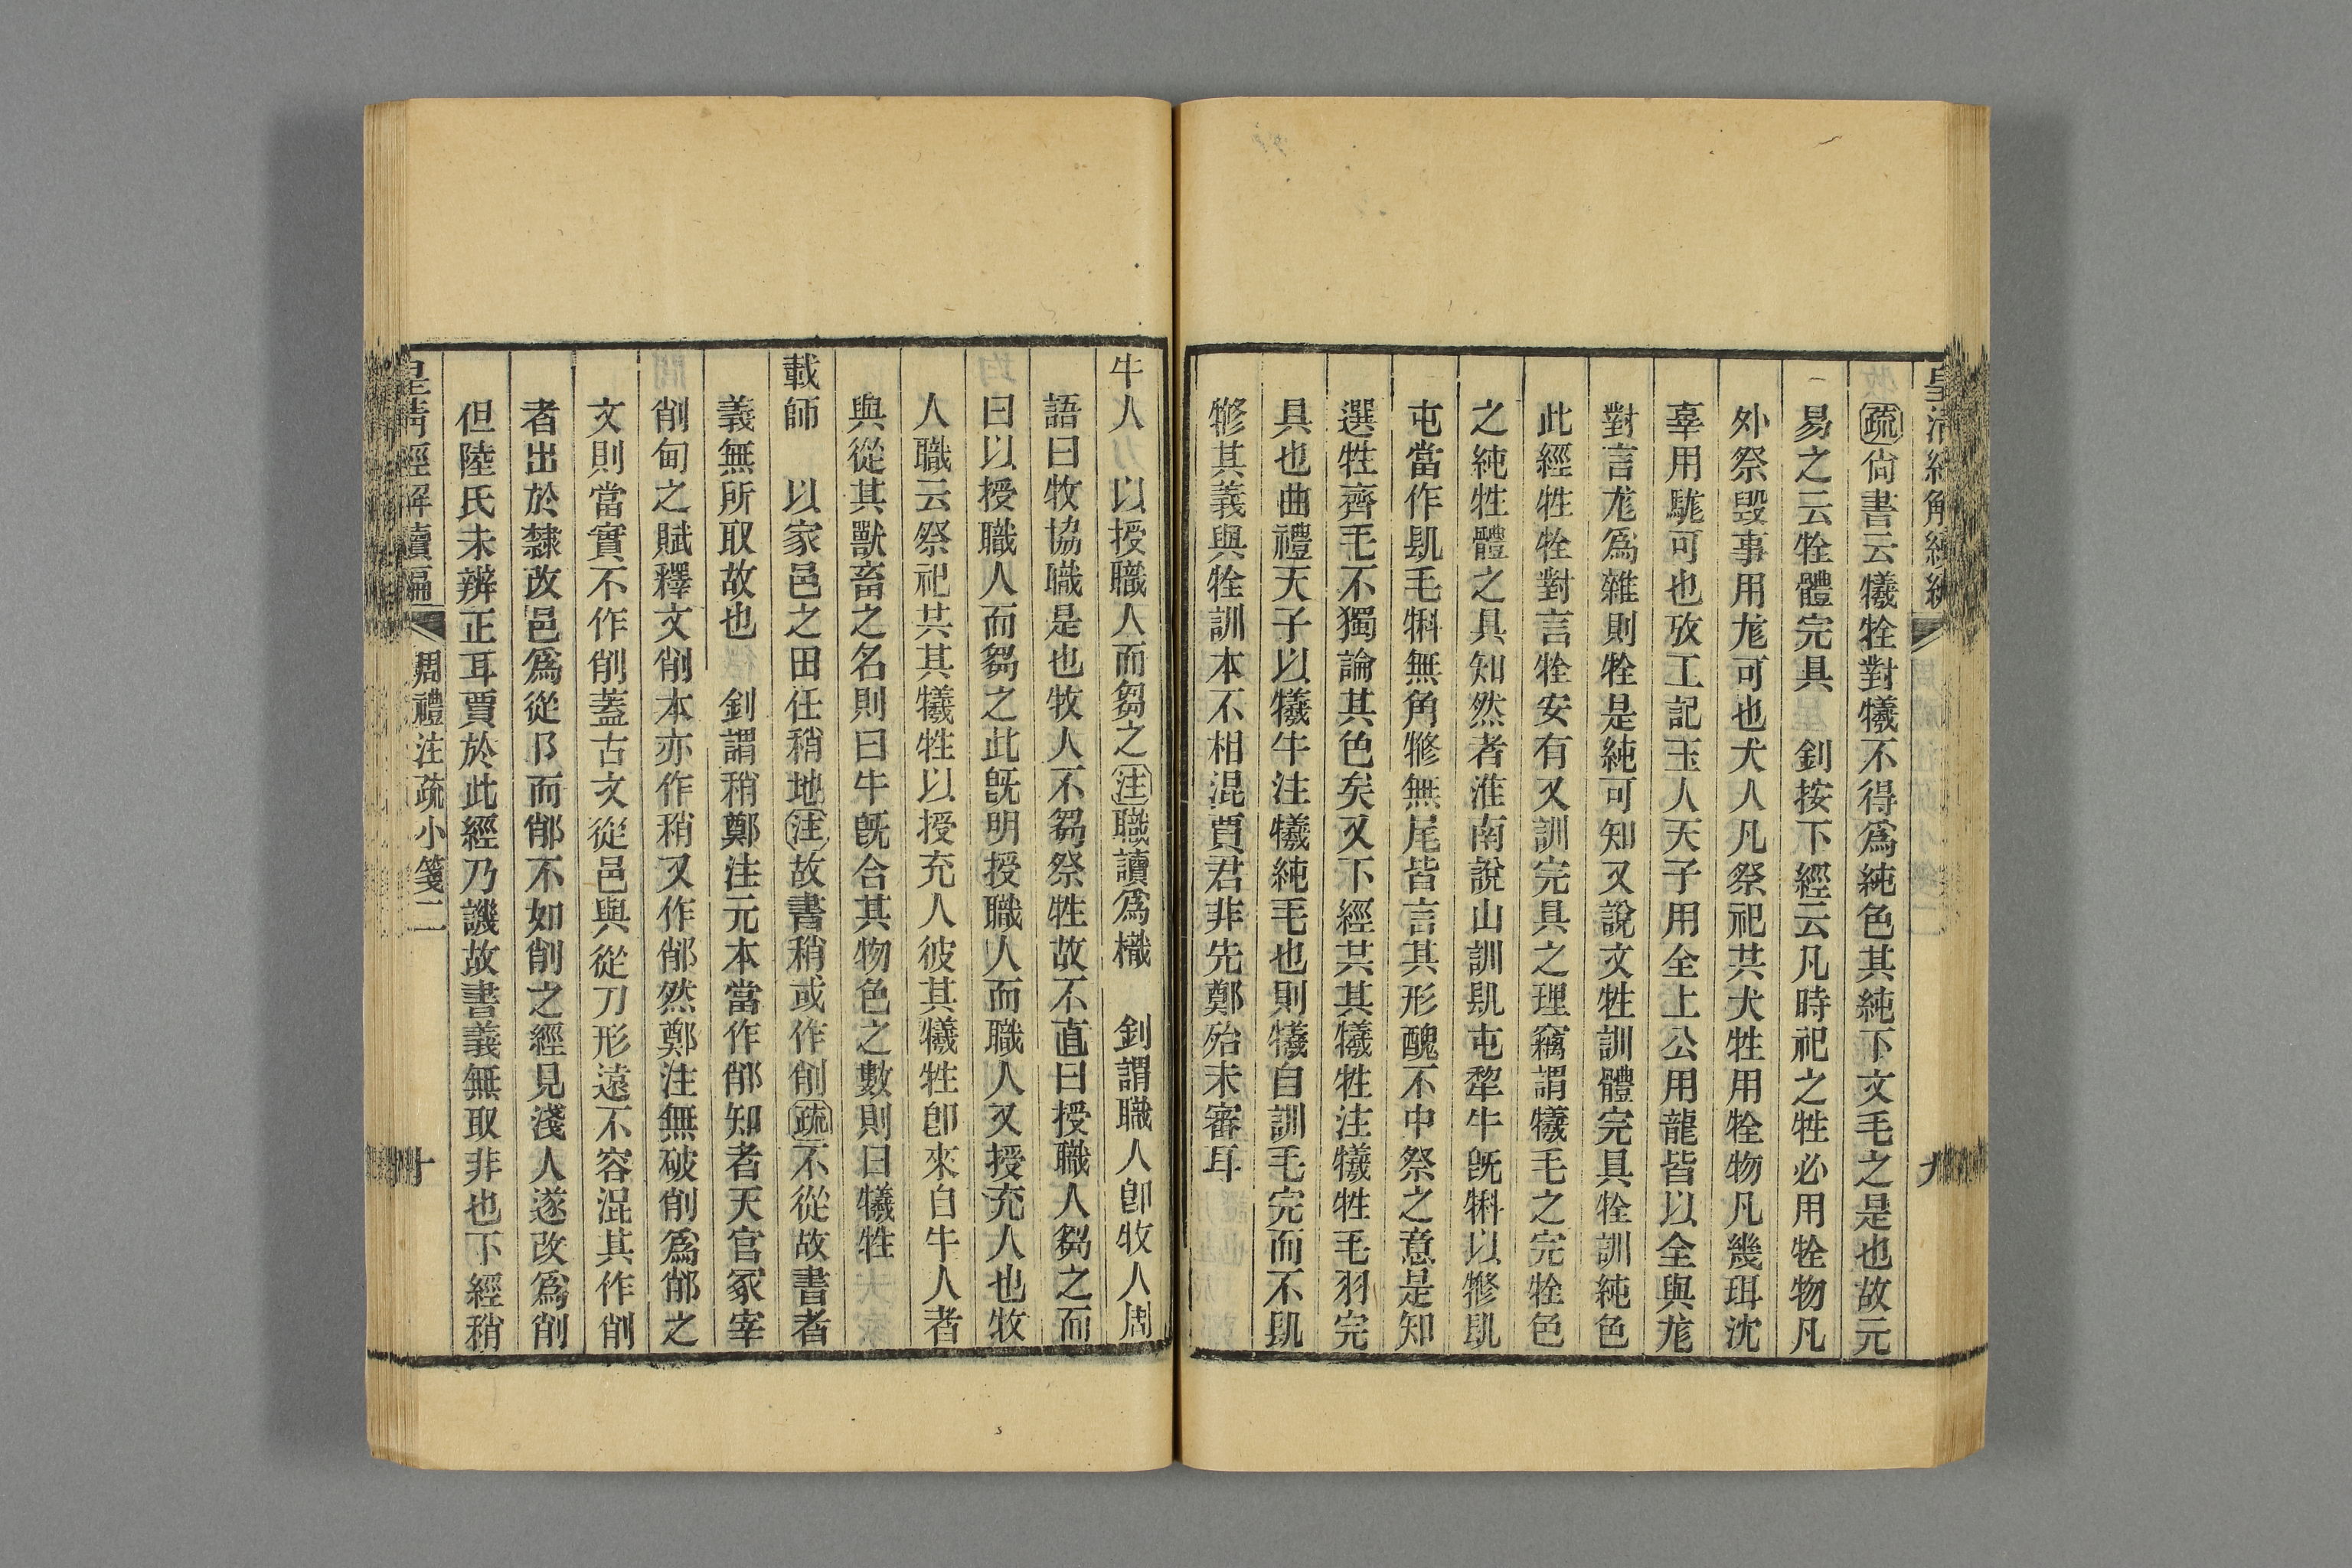 皇清經解續編
九
疏尙書云犧牷對犧不得爲純色其純下文毛之是也故元
易之云牷體完具　釗按下經云凡時祀之牲必用牷物凡
外祭毀事用尨可也犬人凡祭祀共犬牲用牷物凡幾珥沈
辜用駹可也攷工記玉人天子用全上公用龍皆以全與尨
對言尨爲雜則牷是純可知又說文牲訓體完具牷訓純色
此經牲牷對言牷安有又訓完具之理竊謂犧毛之完牷色
之純牲體之具知然者淮南說山訓䯌屯犂牛旣㸹以㹋䯌
屯當作䯌毛㸹無角㹋無尾皆言其形醜不中祭之意是知
選牲齊毛不獨論其色矣又下經共其犧牲注犧牲毛羽完
具也曲禮天子以犧牛注犧純毛也則犧自訓毛完而不䯌
㹋其義與牷訓本不相混賈君非先鄭殆未審耳
牛人　以授職人而芻之注職讀爲樴　釗謂職人卽牧人周
語曰牧協職是也牧人不芻祭牲故不直曰授職人芻之而
曰以授職人而芻之此旣明授職人而職人又授充人也牧
人職云祭祀共其犧牲以授充人彼其犧牲卽來自牛人者
與從其獸畜之名則曰牛旣合其物色之數則曰犧牲
載師　以家邑之田任稍地注故書稍或作削疏不從故書者
義無所取故也　釗謂稍鄭注元本當作䣭知者天官冢宰
削甸之賦釋文削本亦作稍又作䣭然鄭注無破削爲䣭之
文則當實不作削蓋古文從邑與從刀形遠不容混其作削
者出於隸改邑爲從卩而䣭不如削之經見淺人遂改爲削
但陸氏未辨正耳賈於此經乃譏故書義無取非也下經稍
皇淸經解續編
周禮注疏小箋二
十